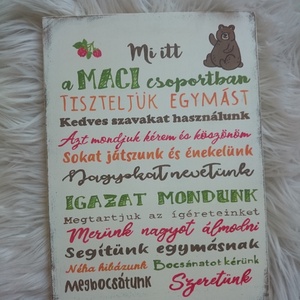 Mi itt
a MACI csoportban
TISZTELJÜK EGYMÁST
Kedves szavakat használunk
Azt mondjuk kérem és köszönöm
Sokat játszunk és énekelünk
Nagyokat nevetünk
IGAZAT MONDUNK
Megtartjuk az ígéreteinket
Merünk nagyot álmodni
Segítünk egymásnak
Néha hibázunk Bocsánatot kérünk
Megbocsátunk Szeretünk